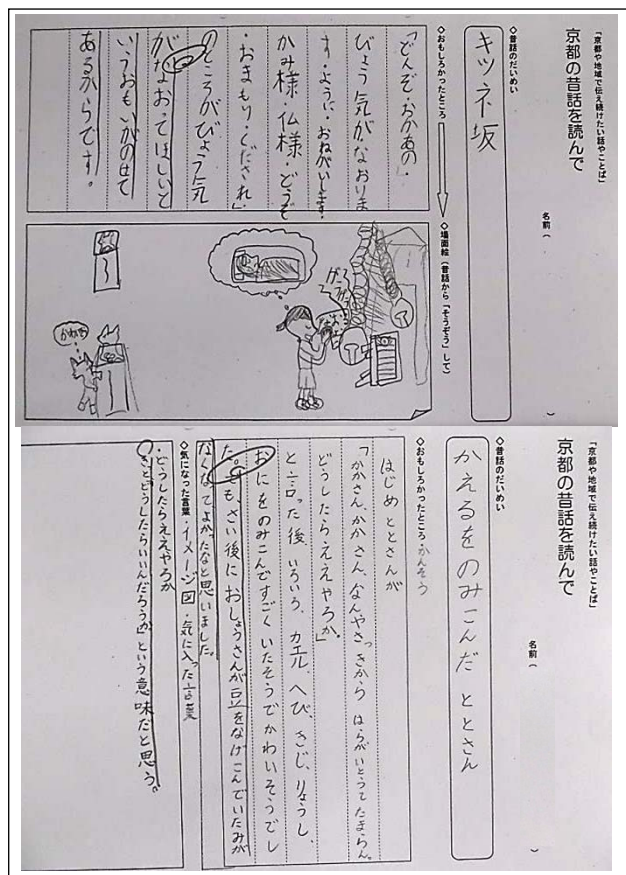 「京都や地域で伝え続けたい話やことば」
京都の昔話を読んで
名前(　　)
◇昔話のだいめい
キツネ坂
◇おもしろかったところ
「どんぞ・おかあの・
びょう気がなおりま
す・ように・おねがいします。
かみ様・仏様・どうぞ
・おまもり・くだされ」
のところがびょう気
がなおってほしいと
いうおもいがのせて
あるからです。
◇場面絵(昔話から「そうぞう」して)
かわいそ
「京都や地域で伝え続けたい話やことば」
京都の昔話を読んで
名前(　　)
◇昔話のだいめい
かえるをのみこんだ ととさん
◇おもしろかったところ・かんそう
はじめ ととさんが
「かかさん、かかさん、なんやさっきから はらがいとうてたまらん。
どうしたらええやろか。」
と言った後、いろいろ、カエル、へび、きじ、りょうし、
おにをのみこんですごくいたそうでかわいそうでし
た。でも、さい後におしょうさんが豆をなげこんでいたみが
なくなってよかったなと思いました。
◇気になった言葉・イメージ図・気に入った言葉
・どうしたらええやろか
「どうしたらいいんだろうか」という意味だと思う。